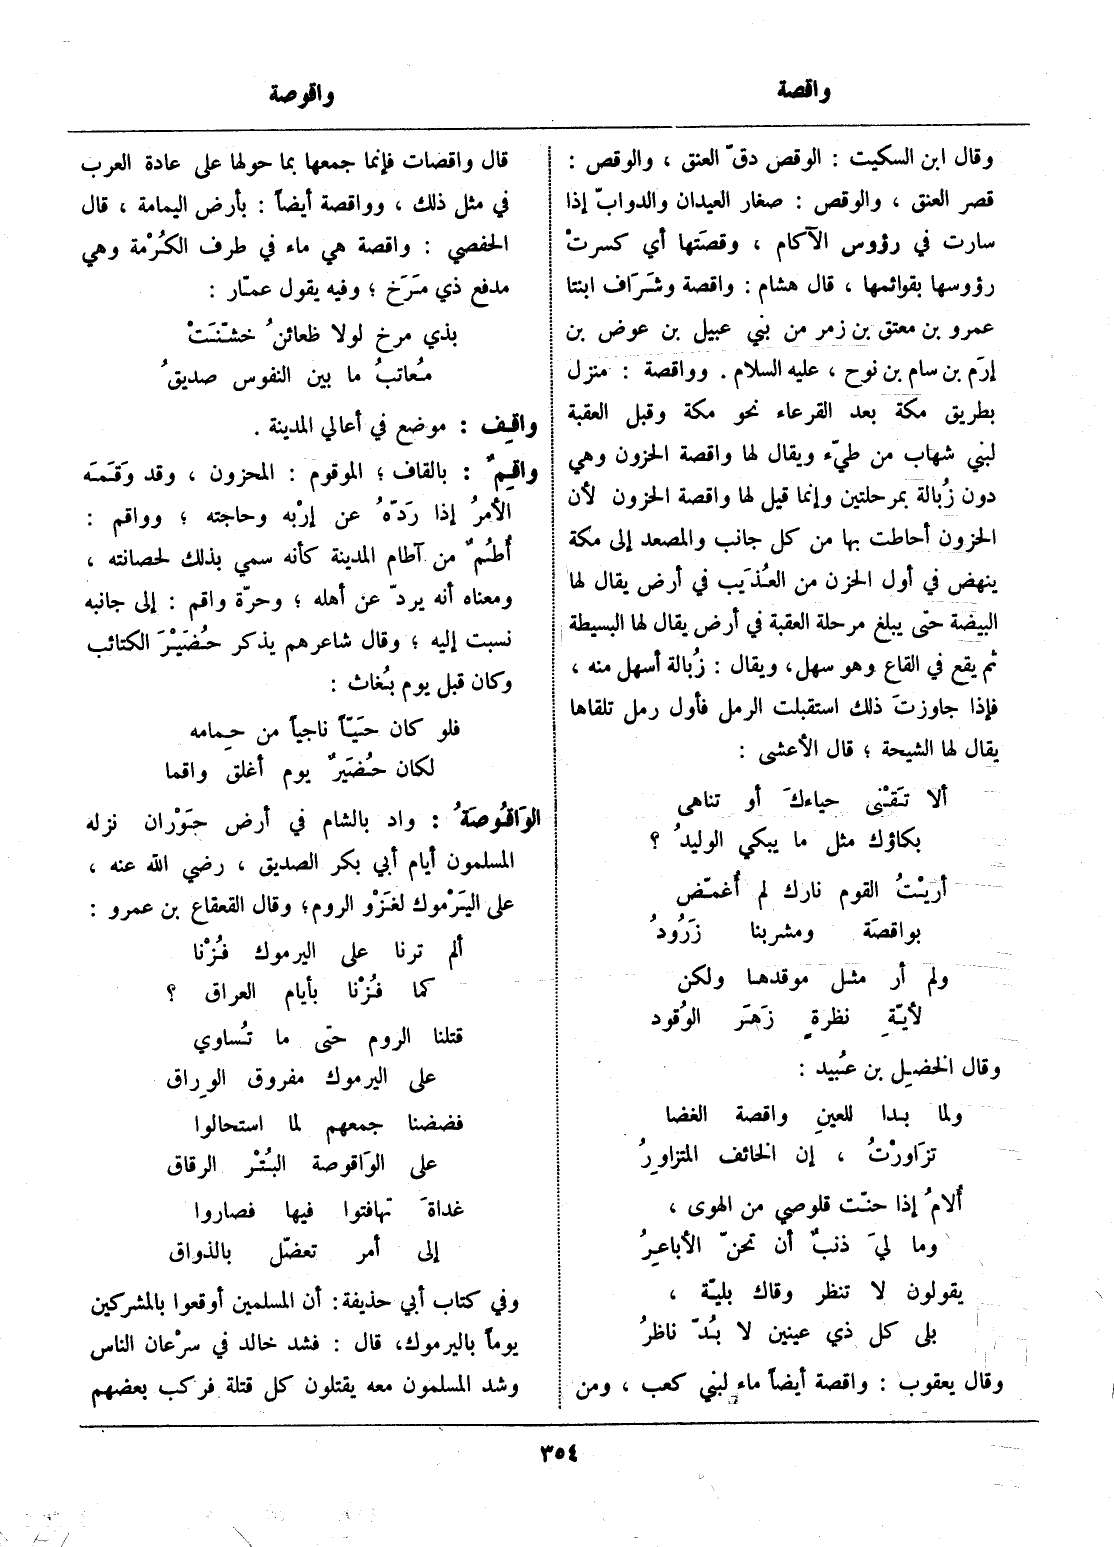 واقصة
واقوصة
وقال ابن السكيت : الوقص دقّ العنق ، والوقص :
قصر العنق ، والوقص : صغار العيدان والدوابّ إذا
سارت في رؤوس الآكام ، وقصَتها أي كسرتْ
رؤوسها بقوائمها ، قال هشام : واقصة وشَرَاف ابنتا
عمرو بن معتق بن زمر من بني عبيل بن عوض بن
إرَم بن سام بن نوح ، عليه السلام . وواقصة : منزل
بطريق مكة بعد القرعاء نحو مكة وقبل العقبة
لبني شهاب من طيّء ويقال لها واقصة الحزون وهي
دون زُبالة بمرحلتين وإنما قيل لها واقصة الحزون لأن
الحزون أحاطت بها من كل جانب والمصعد إلى مكة
ينهض في أول الحزن من العُذَيب في أرض يقال لها
البيضة حتى يبلغ مرحلة العقبة في أرض يقال لها البسيطة
ثم يقع في القاع وهو سهل، ويقال : زُبالة أسهل منه ،
فإذا جاوزتَ ذلك استقبلت الرمل فأول رمل تلقاها
يقال لها الشيحة ؛ قال الأعشى :
ألا تَقْنَى حياءكَ أو تناهى
بكاؤك مثل ما يبكي الوليدُ ؟
أريْتُ القوم نارك لم أُغمّض
بواقصَة ومشربنا زَرُودُ
ولم أر مثل موقدها ولكن
لأيّةِ نظرةٍ زَهَرَ الوُقود
وقال الخضِل بن عُبيد :
ولما بدا للعينِ واقصة الغضا
تزَاورْتُ ، إن الخائف المتزاوِرُ
أُلامُ إذا حنّت قلوصي من الهوى ،
وما ليَ ذنبٌ أن تحنّ الأباعِرُ
يقولون لا تنظر وقاك بليّة ،
بلى كل ذي عينين لا بُدّ ناظرُ
وقال يعقوب : واقصة أيضاً ماء لبني كعب ، ومن
قال واقصات فإنما جمعها بما حولها على عادة العرب
في مثل ذلك ، وواقصة أيضاً : بأرض اليمامة ، قال
الحفصي : واقصة هي ماء في طرف الكُرْمة وهي
مدفع ذي مَرَخ ؛ وفيه يقول عمّار :
بذي مرخ لولا ظعائنُ خشّنَتْ
مُعاتبُ ما بين النفوس صديقُ
واقِف : موضع في أعالي المدينة .
واقِمٌ : بالقاف ؛ الموقوم : المحزون ، وقد وَقَمَه
الأمرُ إذا رَدّهُ عن إرْبه وحاجته ؛ وواقم :
أُطُمٌ من آطام المدينة كأنه سمي بذلك لحصانته ،
ومعناه أنه يردّ عن أهله ؛ وحرّة واقم : إلى جانبه
نسبت إليه ؛ وقال شاعرهم يذكر حُضَيْرَ الكتائب
وكان قبل يوم بُغاث :
فلو كان حَيّاً ناجياً من حِمامه
لكان حُضَيرٌ يوم أغلق واقما
الوَاقُوصَةُ : واد بالشام في أرض حَوْران نزله
المسلمون أيام أبي بكر الصديق ، رضي الله عنه ،
على اليَرْموك لغَزْو الروم؛ وقال القعقاع بن عمرو :
ألم ترنا على اليرموك فُزْنا
كما فُزْنا بأيام العراق ؟
قتلنا الروم حتى ما تُساوي
على اليرموك مفروق الوِراق
فضضنا جمعهم لما استحالوا
على الوَاقوصة البُتْر الرقاق
غداةَ تهافتوا فيها فصاروا
إلى أمر تعضّل بالذواق
وفي كتاب أبي حذيفة : أن المسلمين أوقعوا بالمشركين
يوماً باليرموك، قال : فشد خالد في سرْعان الناس
وشد المسلمون معه يقتلون كل قتلة فركب بعضهم
٣٥٤